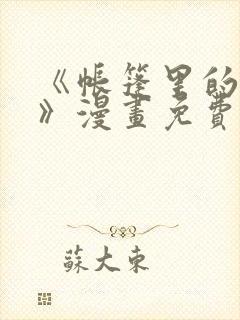 《帐篷里的
》漫畫免費
蘇大東